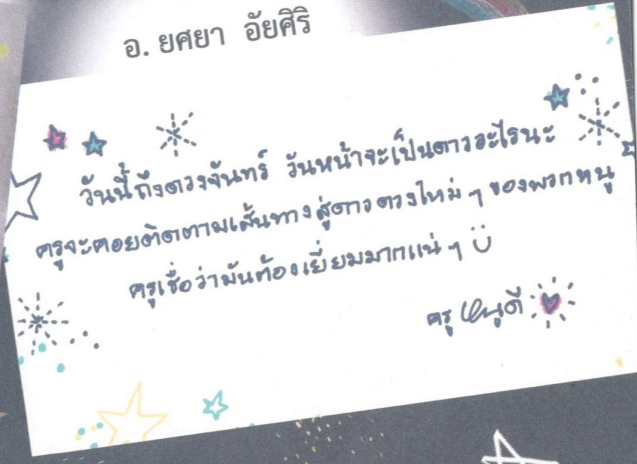 อ. ยศยา อัยศิริ
วันนี้ถึงดวงจันทร์ วันหน้าจะเป็นดาวอะไรนะ
ครูจะคอยติดตามเส้นทางสู่ดาวดวงใหม่ ๆ ของพวกหนู
ครูเชื่อว่ามันต้องเยี่ยมมากแน่ ๆ ü
ครู หนูดี